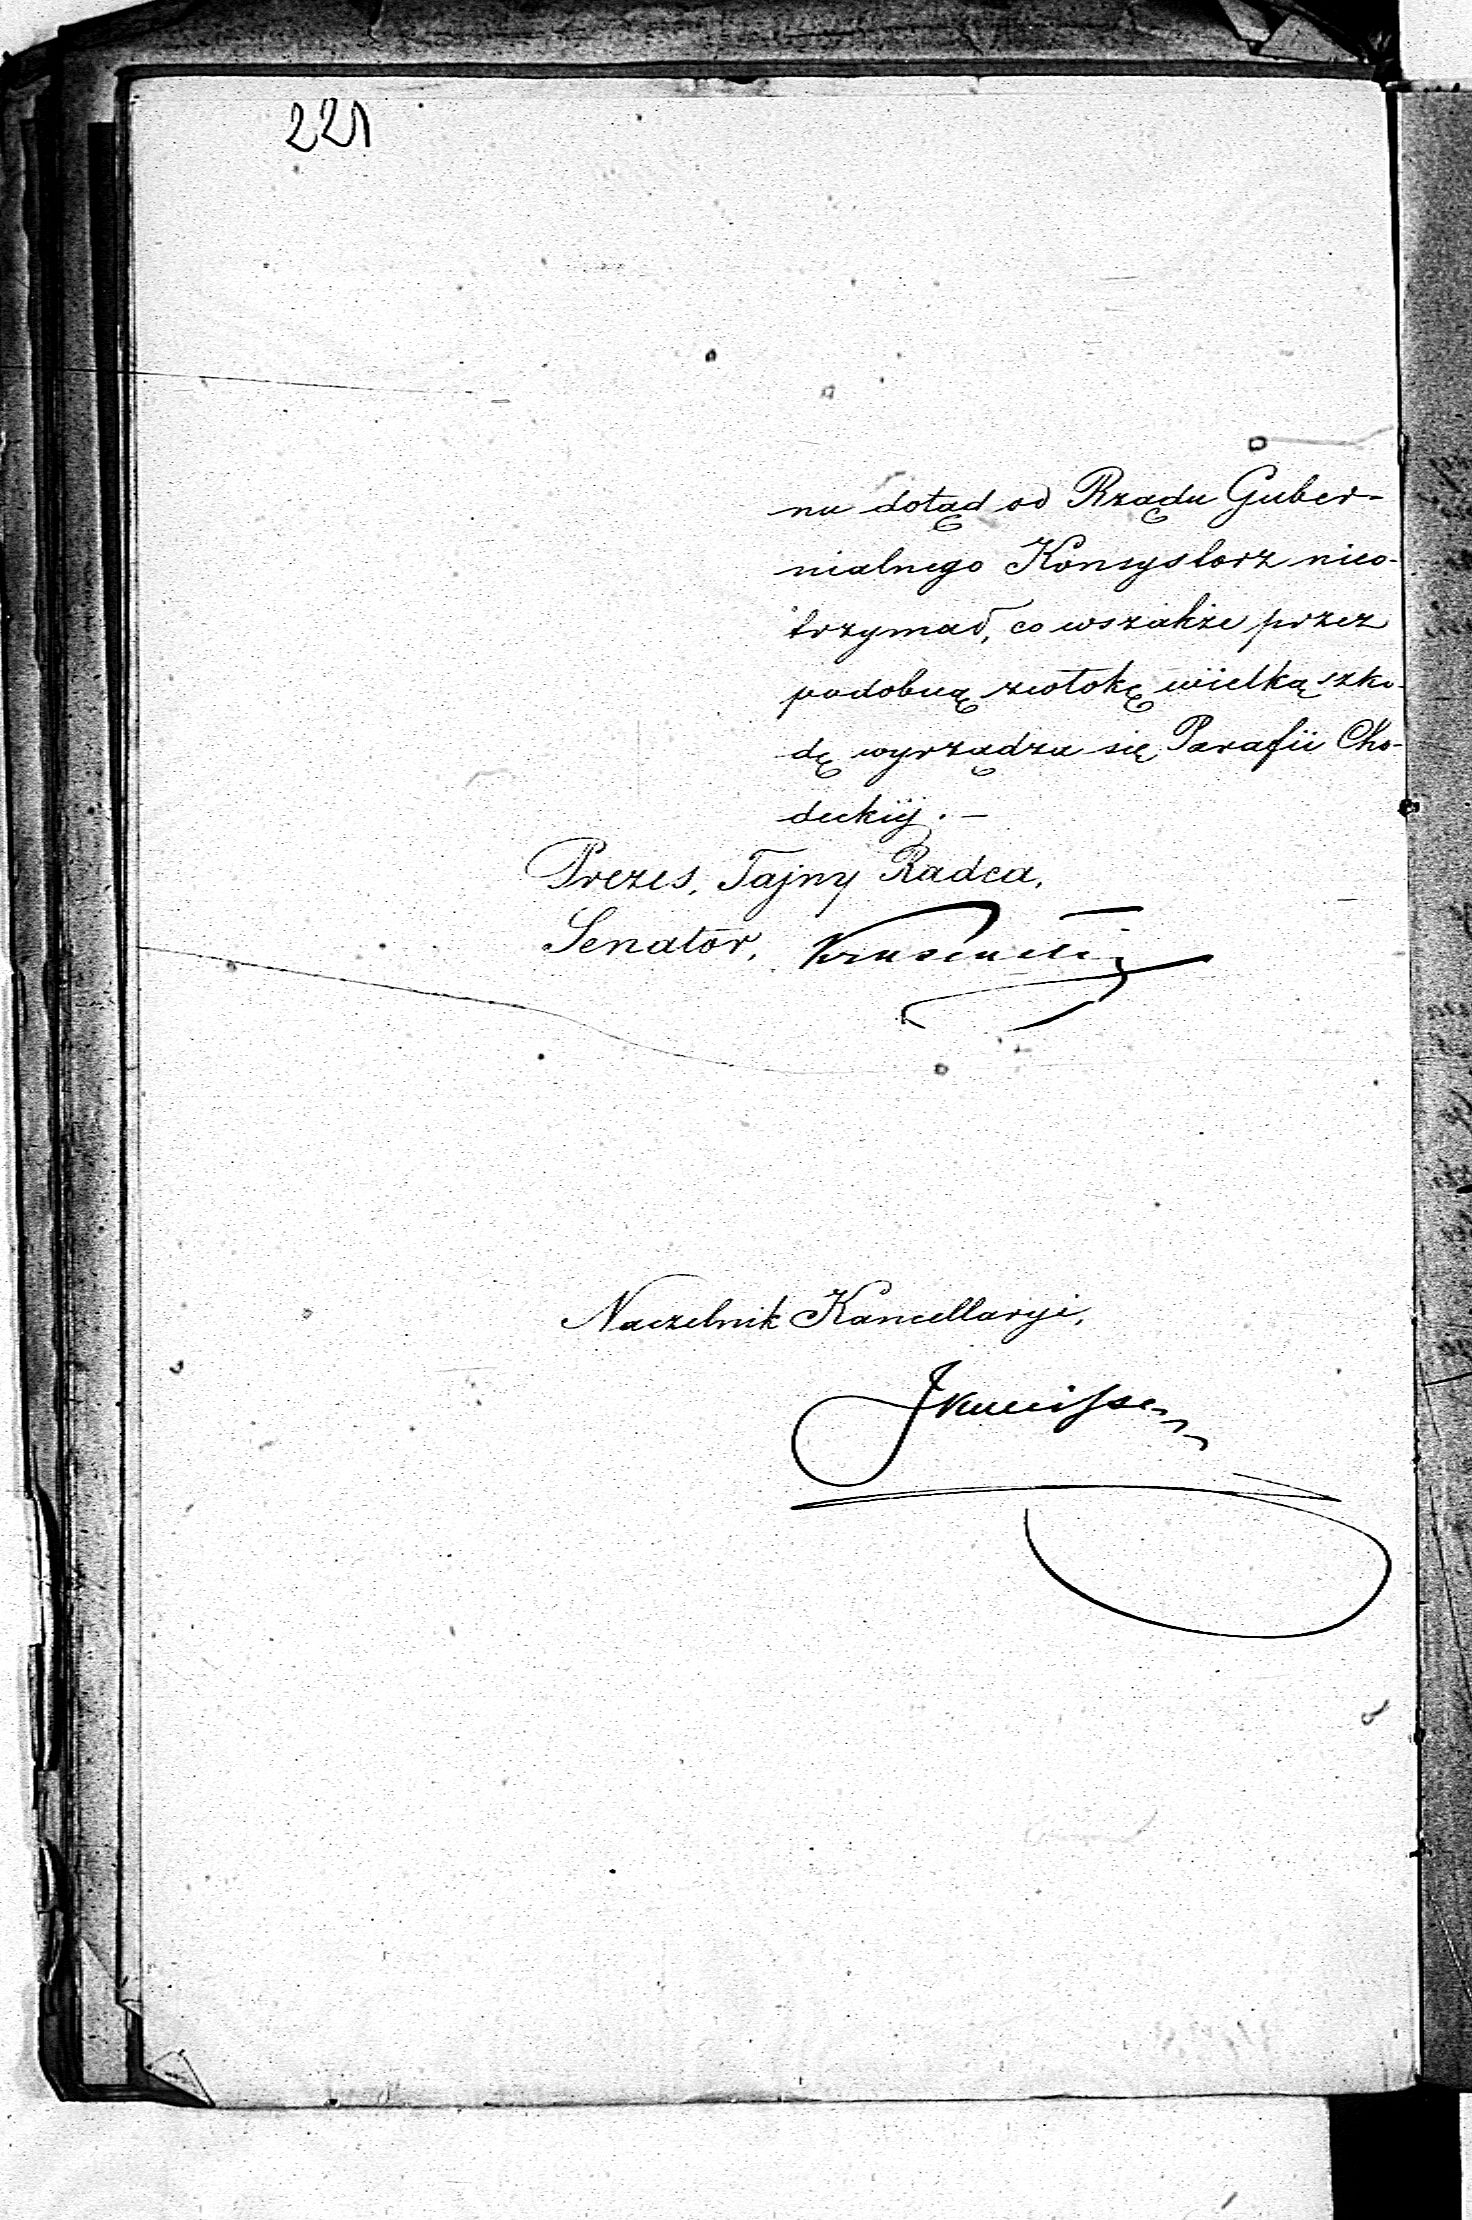 221
na dotąd od Rządu Guber-
nialnego Konsystorz nieo-
trzymał, co wszakże przez
podobną zwłokę wielką szko-
dę wyrządza się Parafii Cho-
deckiéj. —
Prezes, Tajny Radca,
Senator,
Naczelnik Kancellaryi,